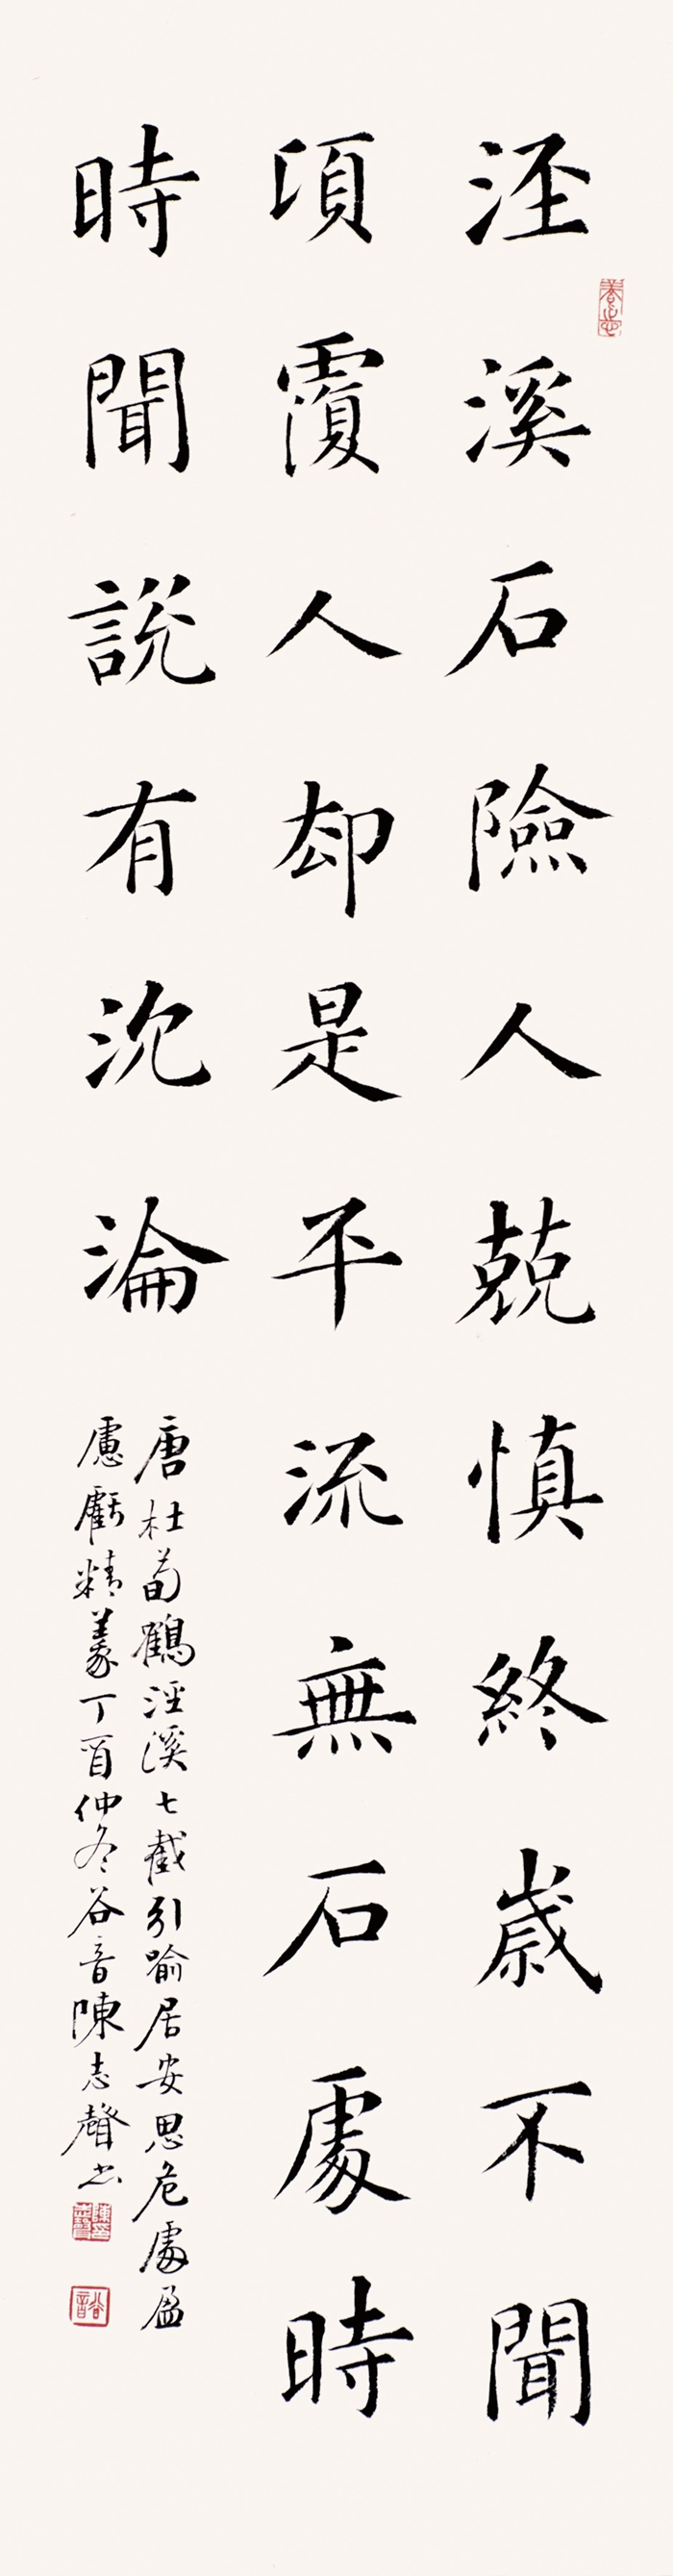 涇溪石險人兢慎終歲不聞
頃覆人却是平流無石處時
時聞說有沈淪
唐杜荀鶴涇溪七截引喻居安思危處盈
慮虧精義丁酉仲冬谷音陳志聲书
谷音